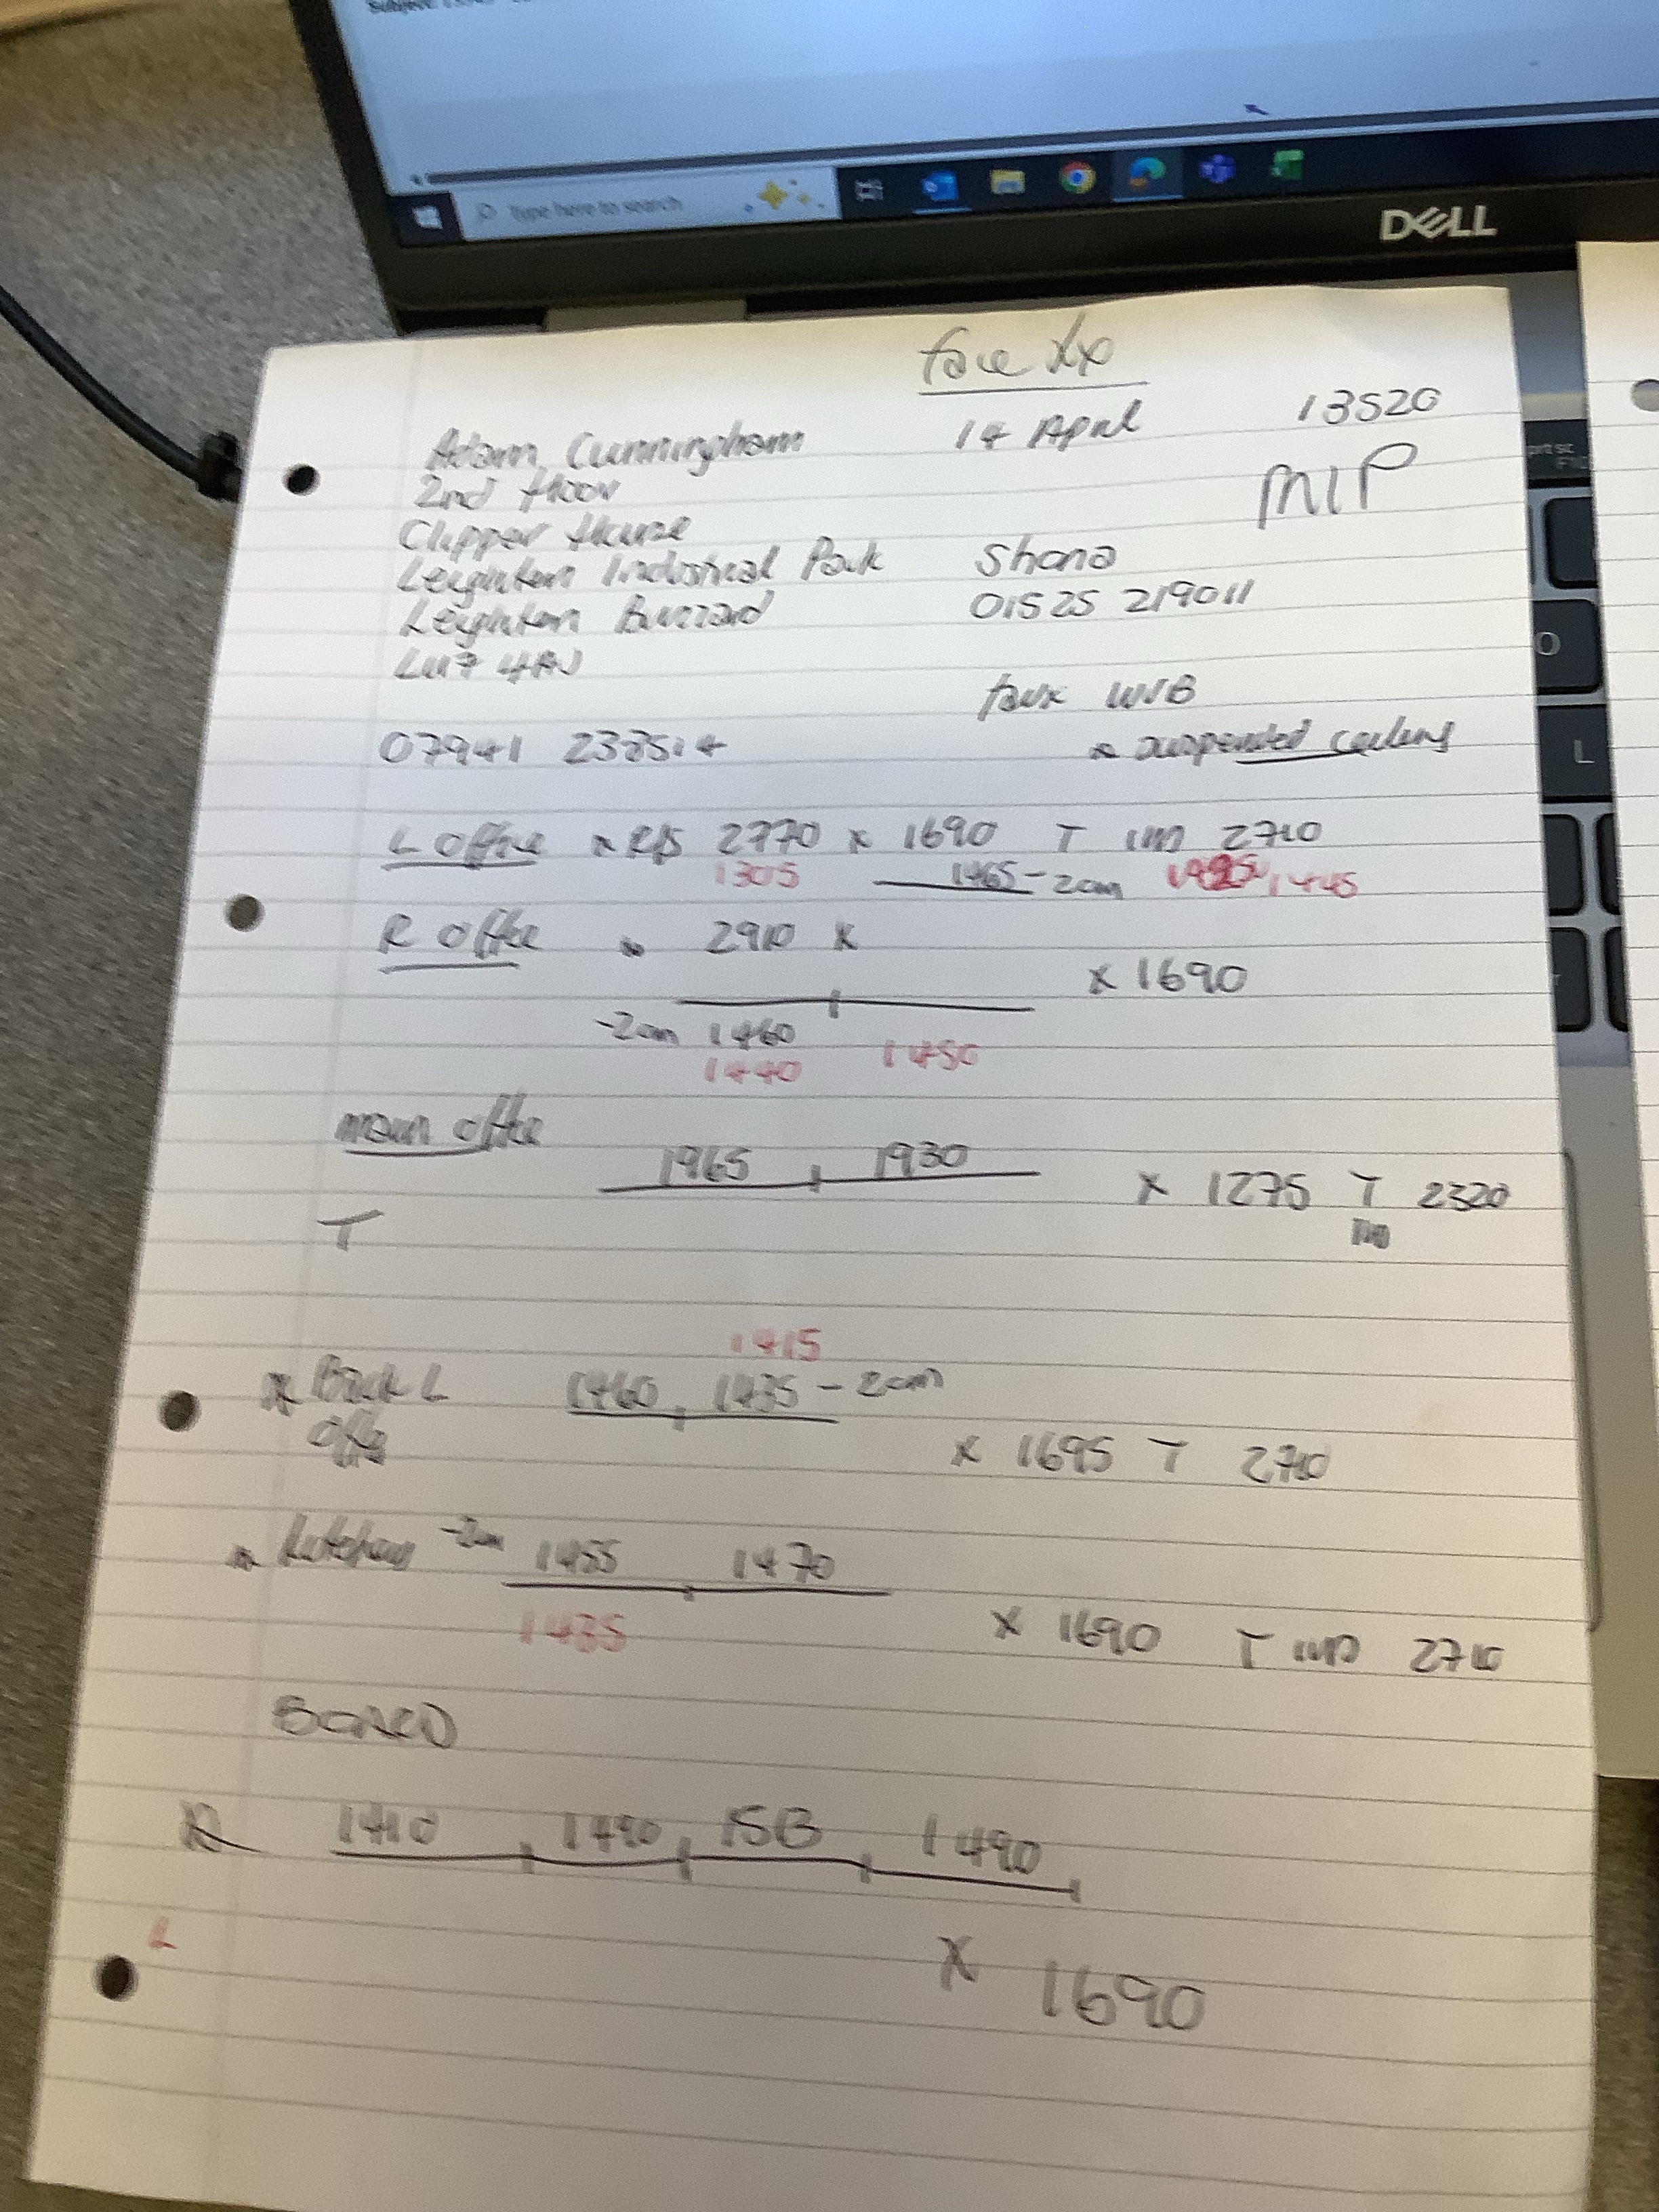 Type here to search
DELL
face fix
Adam Cunningham 14 April 13520
2nd floor MIP
Clipper House
Leighton Industrial Park Shona
Leighton Buzzard 01525 219011
LU7 4AJ
faux WVB
07941 233514 * suspended ceilings
L office * R/S 2770 x 1690 T 1m 2710
1305 1465 - 2cm 1445
R office 2910 x
x 1690
-2cm 1460
1440 1450
main office
1965 1930
x 1275 T 2320
T 1m
1415
* Back L 1460 1435 - 2cm
office
x 1695 T 2710
* Kitchen -2cm 1455 1470
1435 x 1690 T 1m 2710
BOARD
R 1410 1490 15B 1490
L
x 1690